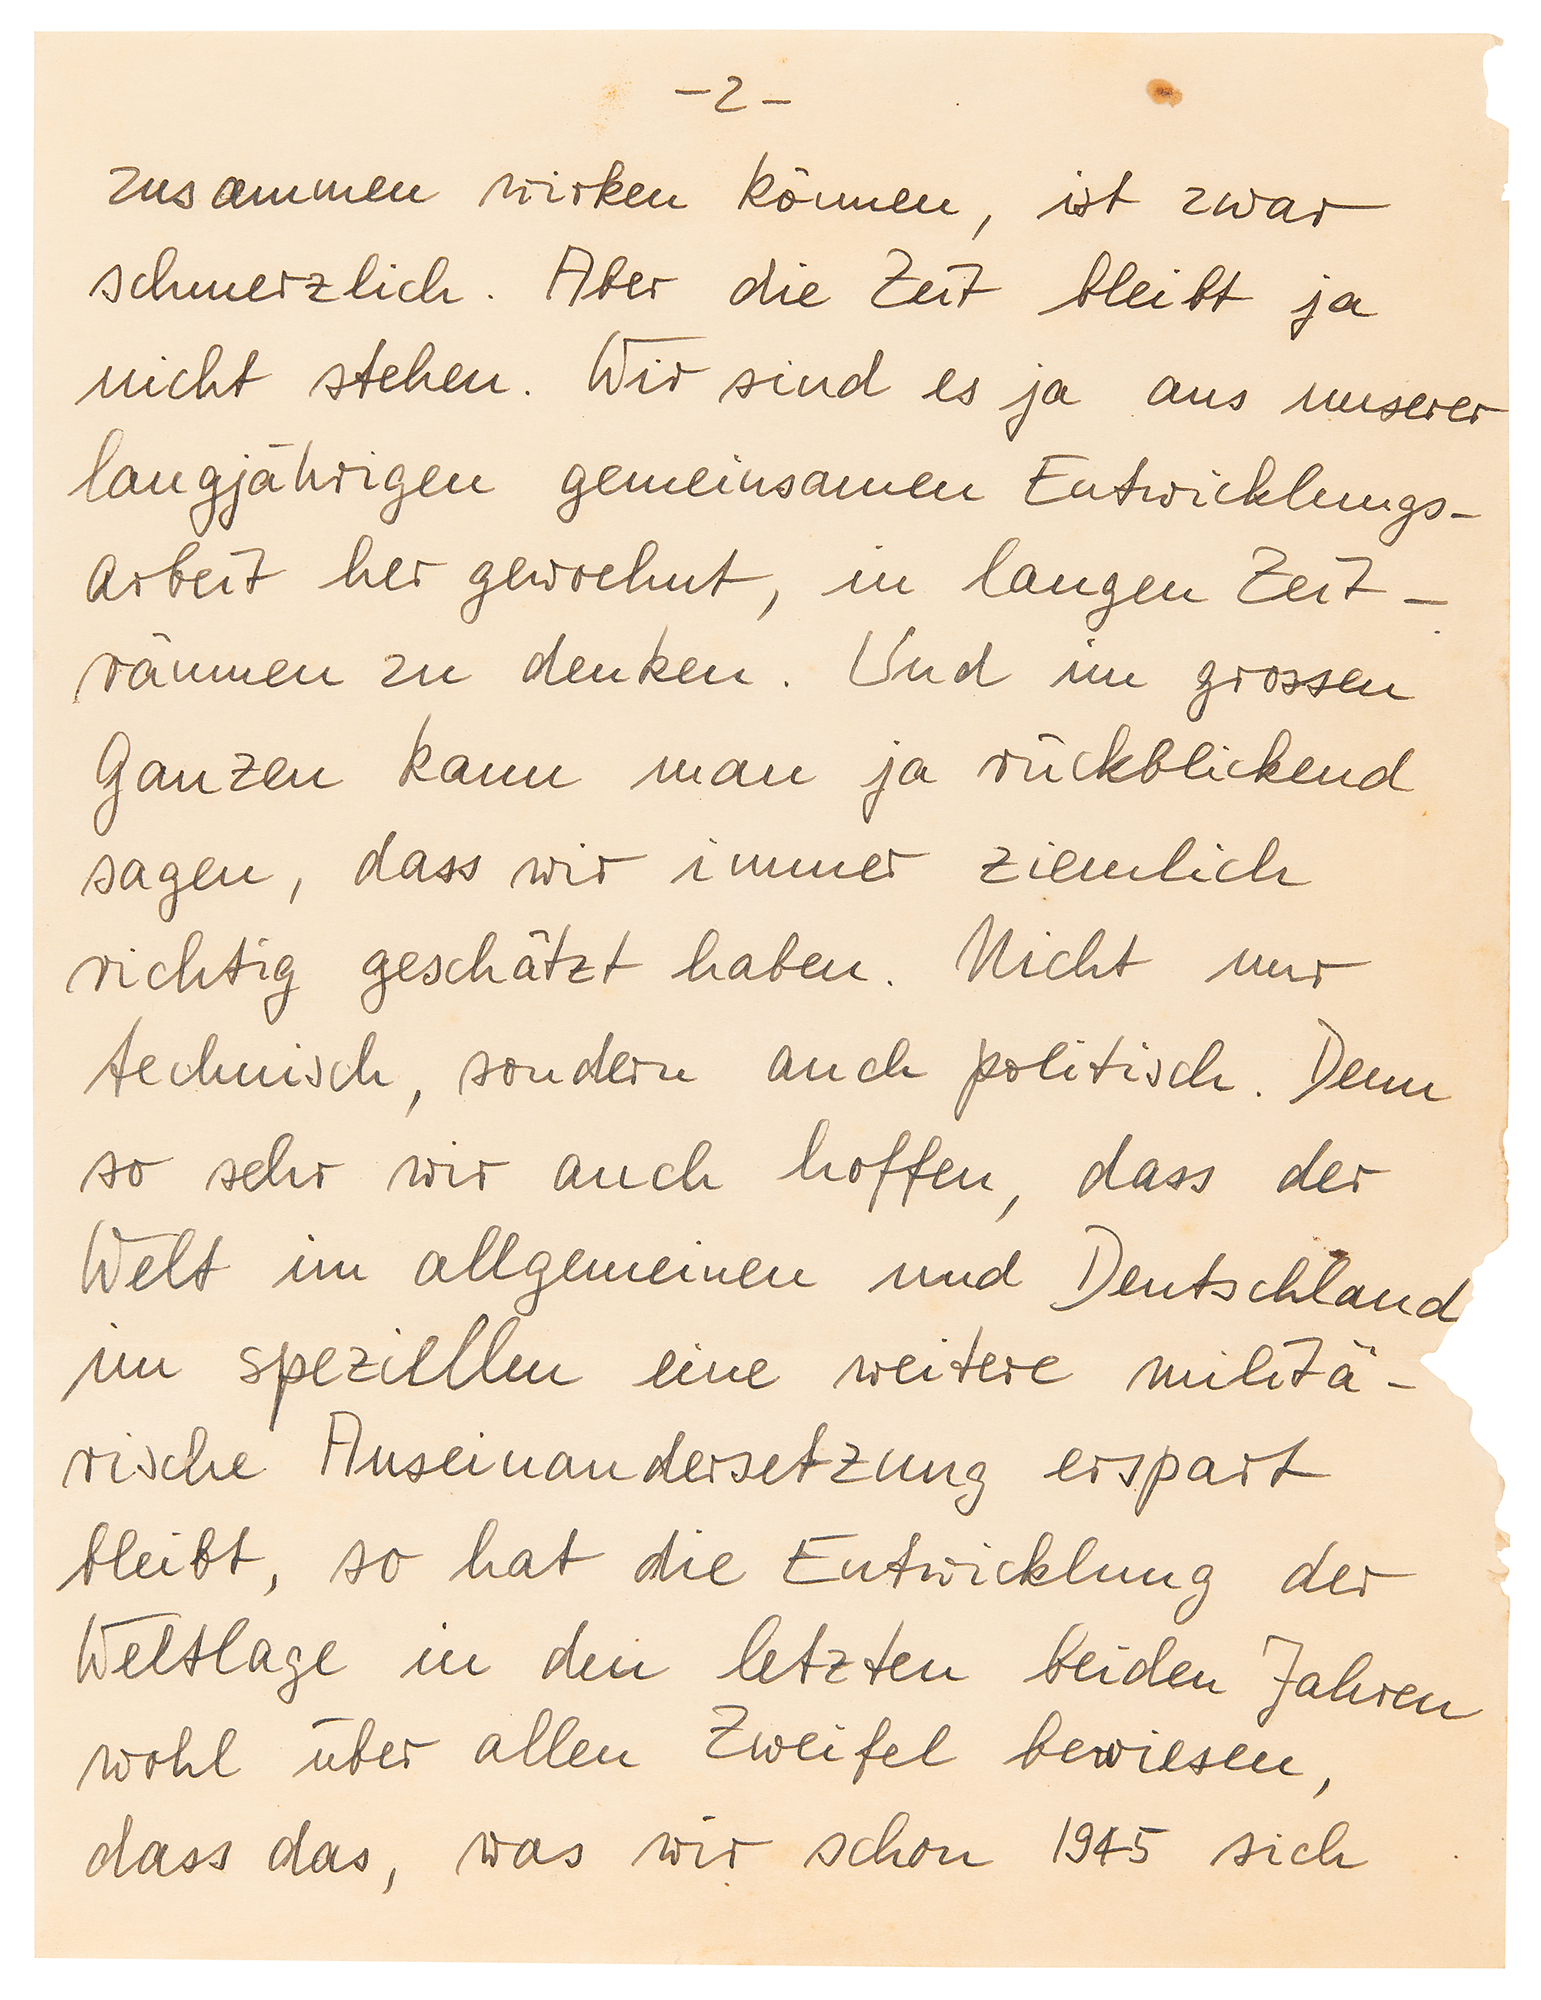 -2-
zusammen wirken können, ist zwar
schmerzlich. Aber die Zeit bleibt ja
nicht stehen. Wir sind es ja aus unserer
langjährigen gemeinsamen Entwicklungs-
arbeit her gewoehnt, in langen Zeit-
räumen zu denken. Und im grossen
Ganzen kann man ja rückblickend
sagen, dass wir immer ziemlich
richtig geschätzt haben. Nicht nur
technisch, sondern auch politisch. Denn
so sehr wir auch hoffen, dass der
Welt im allgemeinen und Deutschland
im speziellen eine weitere militä-
rische Auseinandersetzung erspart
bleibt, so hat die Entwicklung der
Weltlage in den letzten beiden Jahren
wohl über allen Zweifel bewiesen,
dass das, was wir schon 1945 sich